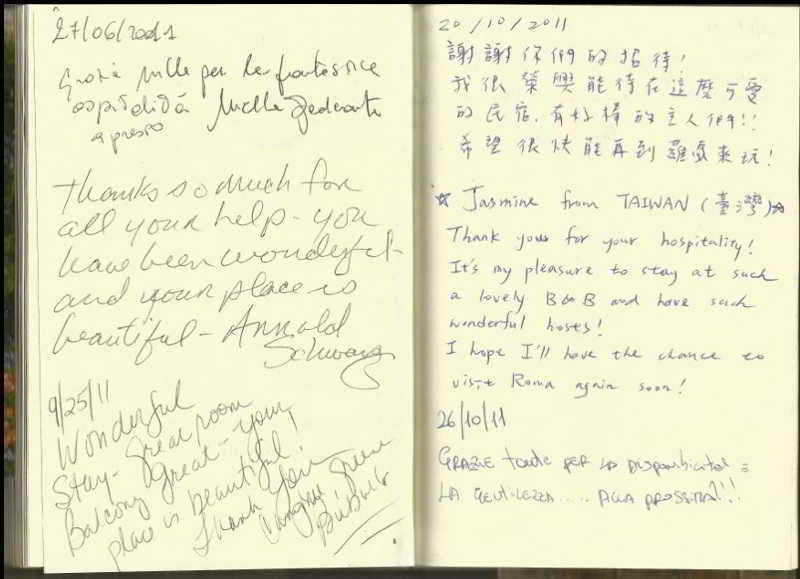 27/06/2011
Grazie mille per la fantastica
ospitalità
a presto
Thanks so much for
all your help - you
have been wonderful -
and your place is
beautiful - Arnold
9/25/11
Wonderful
Stay - Great room
Balcony great - your
place is beautiful!
Thank You
20/10/2011
謝謝你們的招待!
我很榮興能待在這麼可愛
的民宿,有好棒的主人們!!
希望很快能再到羅馬來玩!
☆ Jasmine from TAIWAN (臺灣)☆
Thank you for your hospitality!
It's my pleasure to stay at such
a lovely B&B and have such
wonderful hosts!
I hope I'll have the chance to
visit Roma again soon!
26/10/11
GRAZIE tante PER LA DISPONIBILITÀ E
LA GENTILEZZA.... ALLA PROSSIMA!!!